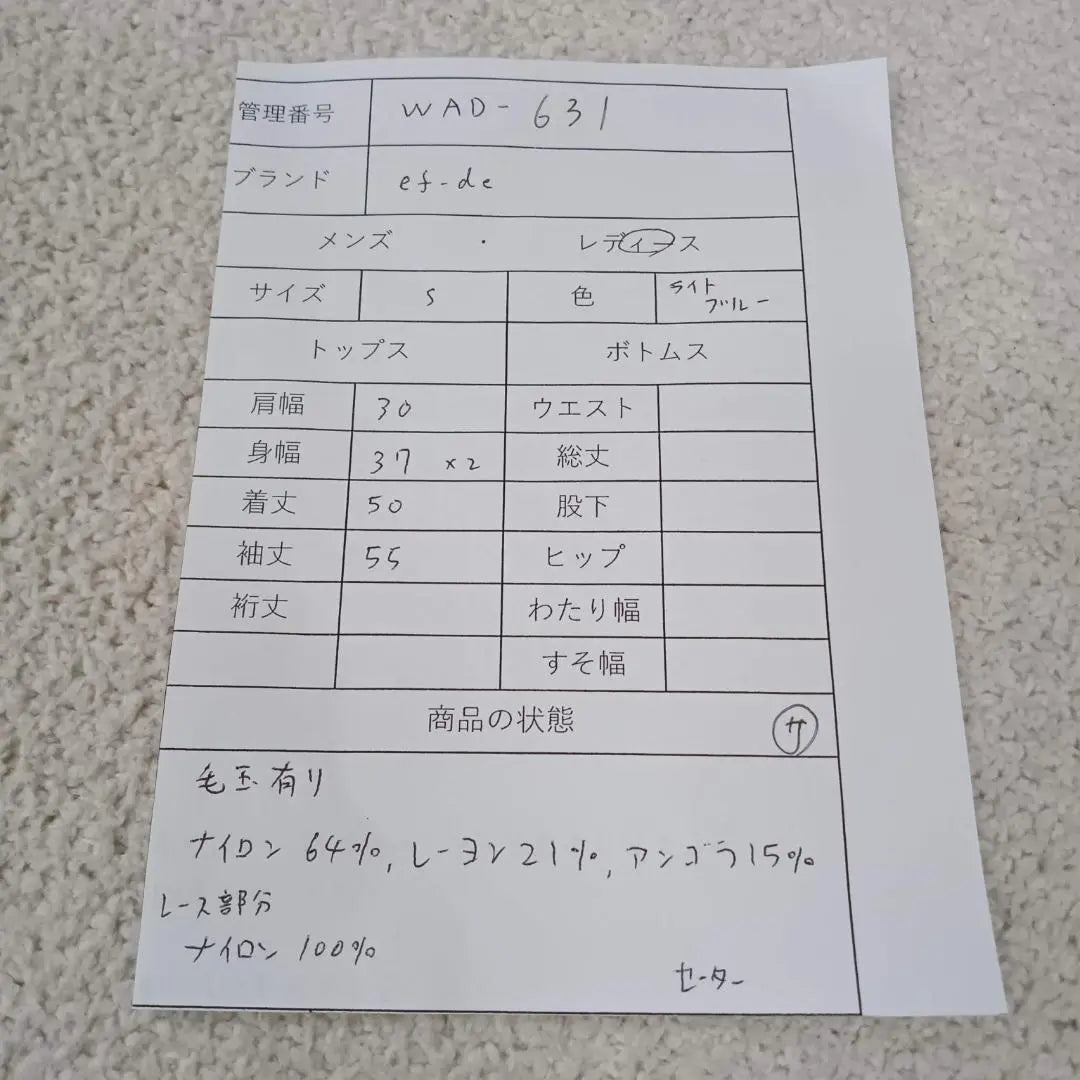 管理番号 WAD-631
ブランド ef-de
メンズ ・ レディース
サイズ S 色 ライト
ブルー
トップス ボトムス
肩幅 30 ウエスト
身幅 37 ×2 総丈
着丈 50 股下
袖丈 55 ヒップ
裄丈 わたり幅
すそ幅
商品の状態 サ
毛玉有り
ナイロン 64%, レーヨン21%, アンゴラ15%
レース部分
ナイロン 100%
セーター